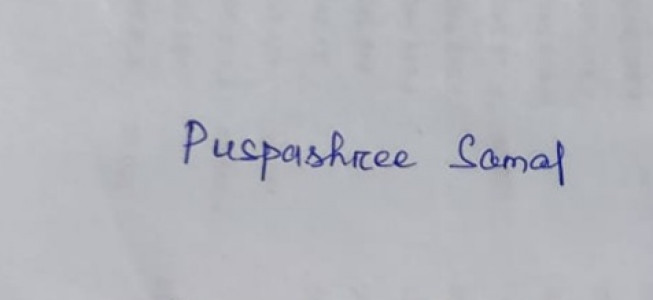 Puspashree Samal